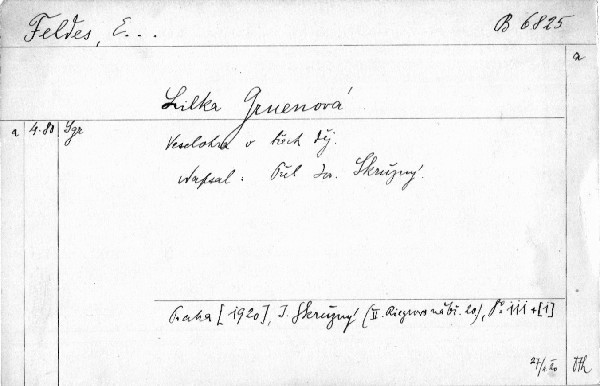 Feldes, E... B 6825
a
Lilka Gruenová
a 4.80 Sgr
Veselohra v třech děj.
Napsal. Přel Jos. Skružný.
Praha [1920], J. Skružný (II. Riegrovo nábř. 20), 8° 111+[1]